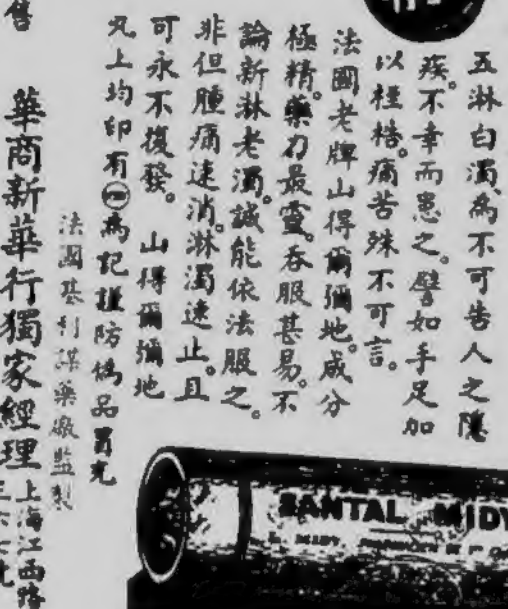 五淋白濁。為不可告人之隱
疾。不幸而患之。譬如手足加
以桎梏。痛苦殊不可言。
法國老牌山得爾彌地。成分
極精。藥力最靈。吞服甚易。不
論新淋老濁。誠能依法服之。
非但腫痛速消。淋濁速止。且
可永不復發。山得爾彌地
丸上均印有㊀為記謹防偽品冒充
法國基利謀藥廠監製
華商新華行獨家經理
上海江西路
售
SANTAL MIDY